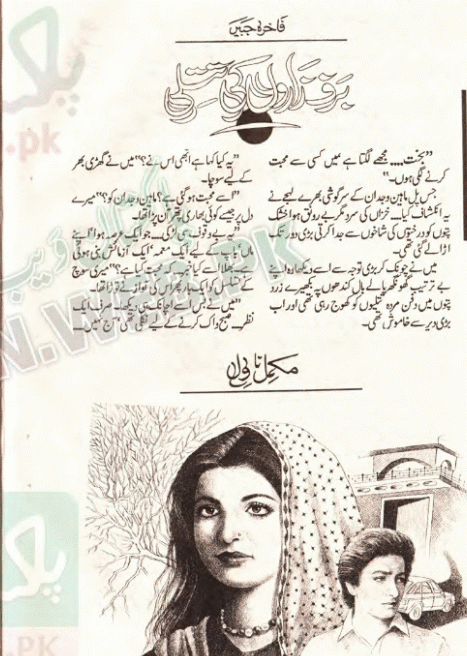 فاخرہ جبیں
برفزاروں کی تتلی
”بخت.... مجھے لگتا ہے میں کسی سے محبت
کرنے لگی ہوں۔“
جس پل ماہین وجدان کے سرگوشی بھرے لہجے نے
یہ انکشاف کیا۔ خزاں کی سرد مگر بے رونق ہوا خشک
پتوں کو درختوں کی شاخوں سے جدا کرتی بڑی دور تک
اڑا لے گئی تھی۔
میں نے چونک کر بڑی توجہ سے اسے دیکھا وہ اپنے
بے ترتیب گھونگھریالے بال کندھوں پہ بکھیرے زرد
پتوں میں دفن مردہ تتلیوں کو کھوج رہی تھی اور اب
بڑی دیر سے خاموش تھی۔
”یہ کیا کہا ہے ابھی اس نے؟“ میں نے گھڑی بھر
کے لیے سوچا۔
”اسے محبت ہو گئی ہے؟ ماہین وجدان کو؟“ میرے
دل پر جیسے کوئی بھاری پتھر آن پڑا تھا۔
”یہ بے وقوف سی لڑکی.... جو ایک عرصہ ہوا اپنے
ماں باپ کے لیے ایک معمہ، ایک آزمائش بنی ہوئی
ہے۔ بھلا اسے کیا خبر کہ محبت کیا ہے؟“ میری سوچ
کے تسلسل کو ایک بار پھر اس کی آواز نے توڑا تھا۔
”میں نے بس اسے اچانک ہی دیکھا۔ صرف ایک
نظر.... صبح واک کرنے کے لیے نکلی تھی آج میں....
مکمل ناول
پاک
.pk
PK